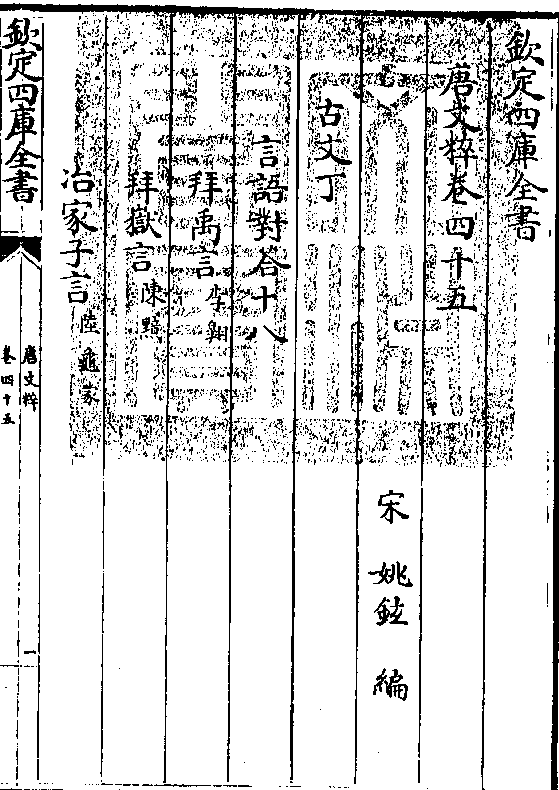 欽定四庫全書
唐文粹卷四十五
宋 姚鉉 編
古文丁
言語對答十八
拜禹言 李翺
拜嶽言 陳黯
冶家子言 陸龜蒙
欽定四庫全書
唐文粹
卷四十五
一